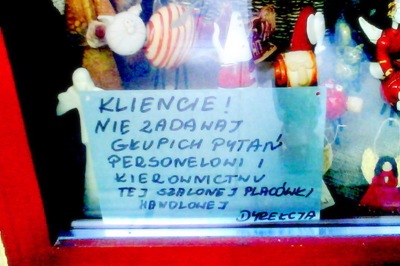 KLIENCIE!
NIE ZADAWAJ
GŁUPICH PYTAŃ
PERSONELOWI I
KIEROWNICTWU
TEJ SZALONEJ PLACÓWKI
HANDLOWEJ
DYREKCJA